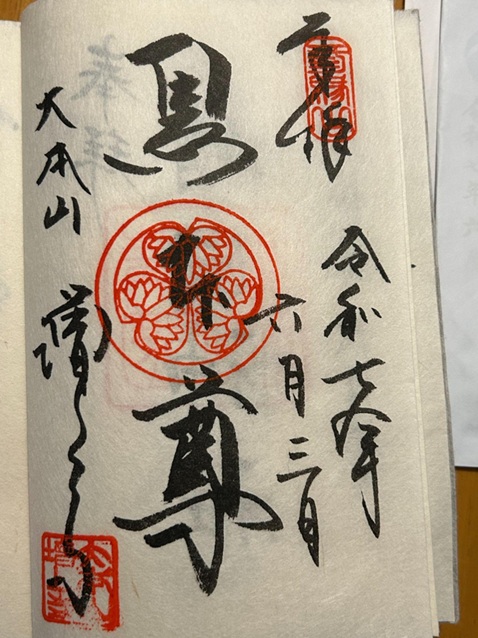 奉拝
令和七年
六月三日
黒本尊
大本山
増上寺